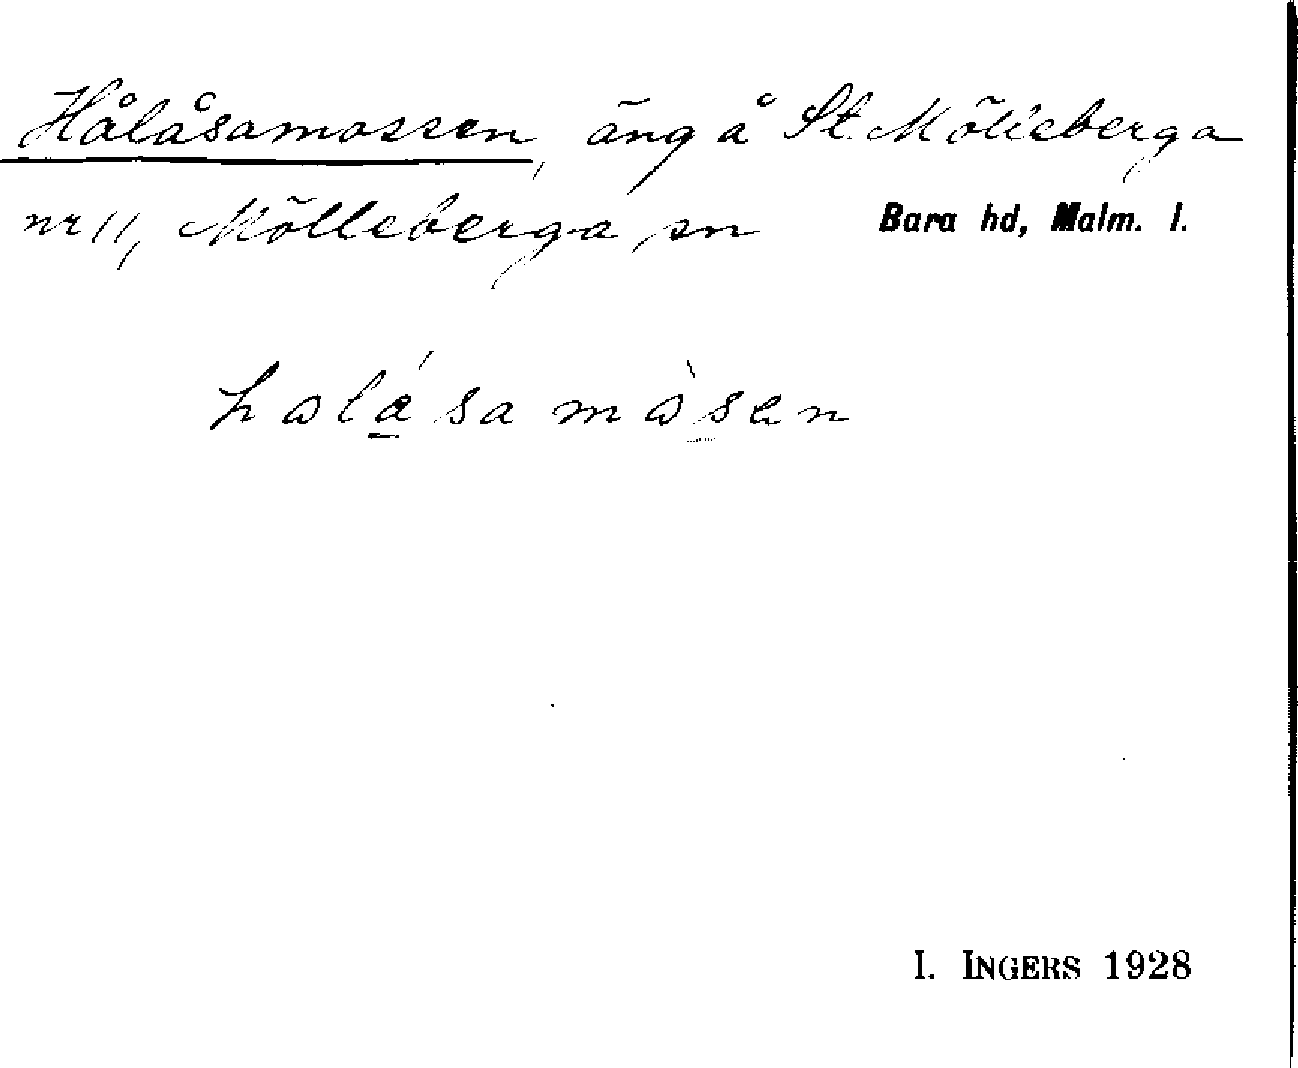 Hålåsamossen, äng å St. Mölleberga
nr 11, Mölleberga sn Bara hd, Malm. l.
halása mòsen
I. INGERS 1928